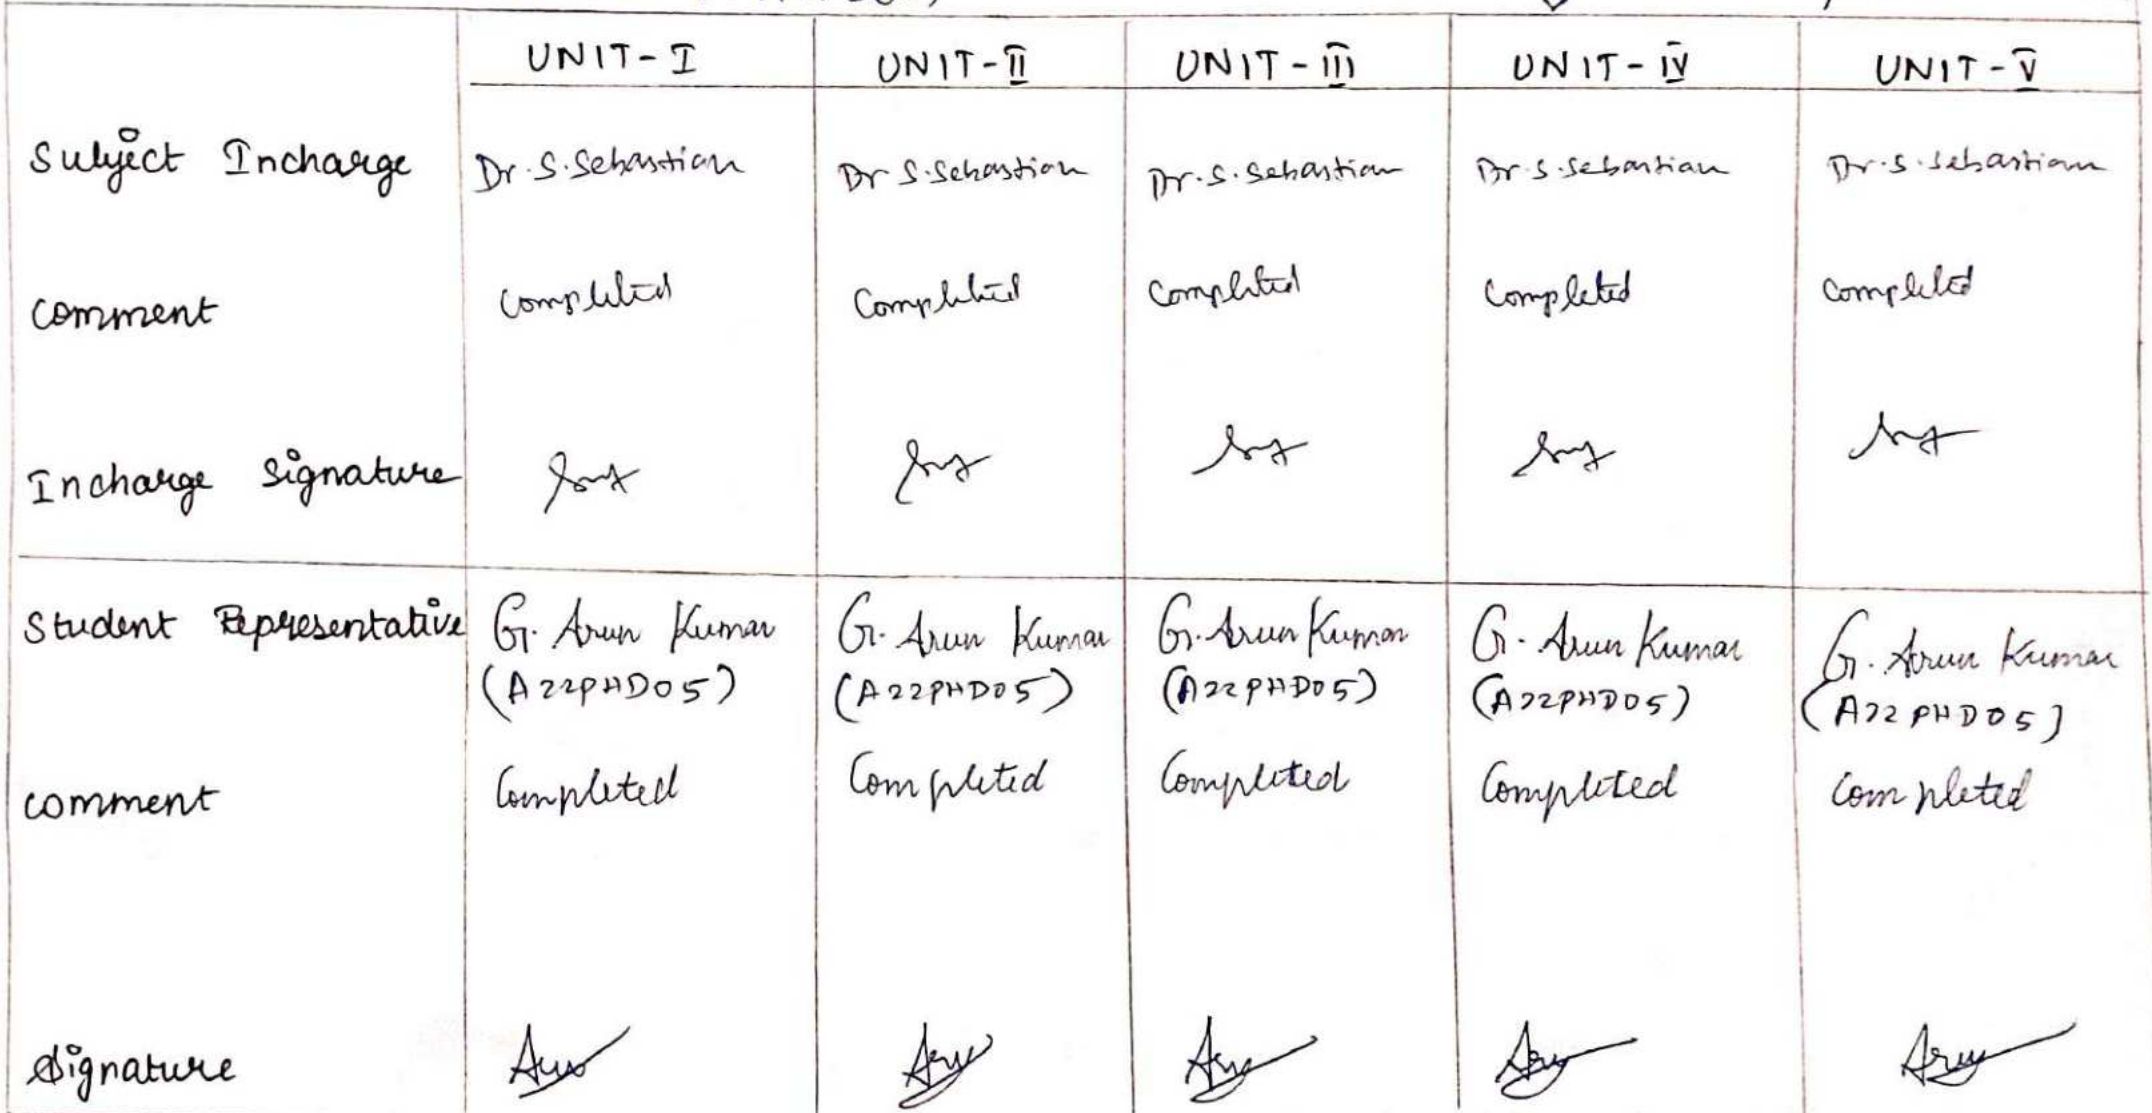 UNIT-I UNIT-II UNIT-III UNIT-IV UNIT-V
Subject Incharge Dr. S. Sebastian Dr S. Sebastian Dr. S. Sebastian Dr. S. Sebastian Dr. S. Sebastian
comment Completed Completed Completed Completed Completed
Incharge Signature
Student Representative G. Arun Kumar G. Arun Kumar G. Arun Kumar G. Arun Kumar G. Arun Kumar
(A22PHD05) (A22PHD05) (A22PHD05) (A22PHD05) (A22PHD05)
comment Completed Completed Completed Completed Completed
Signature